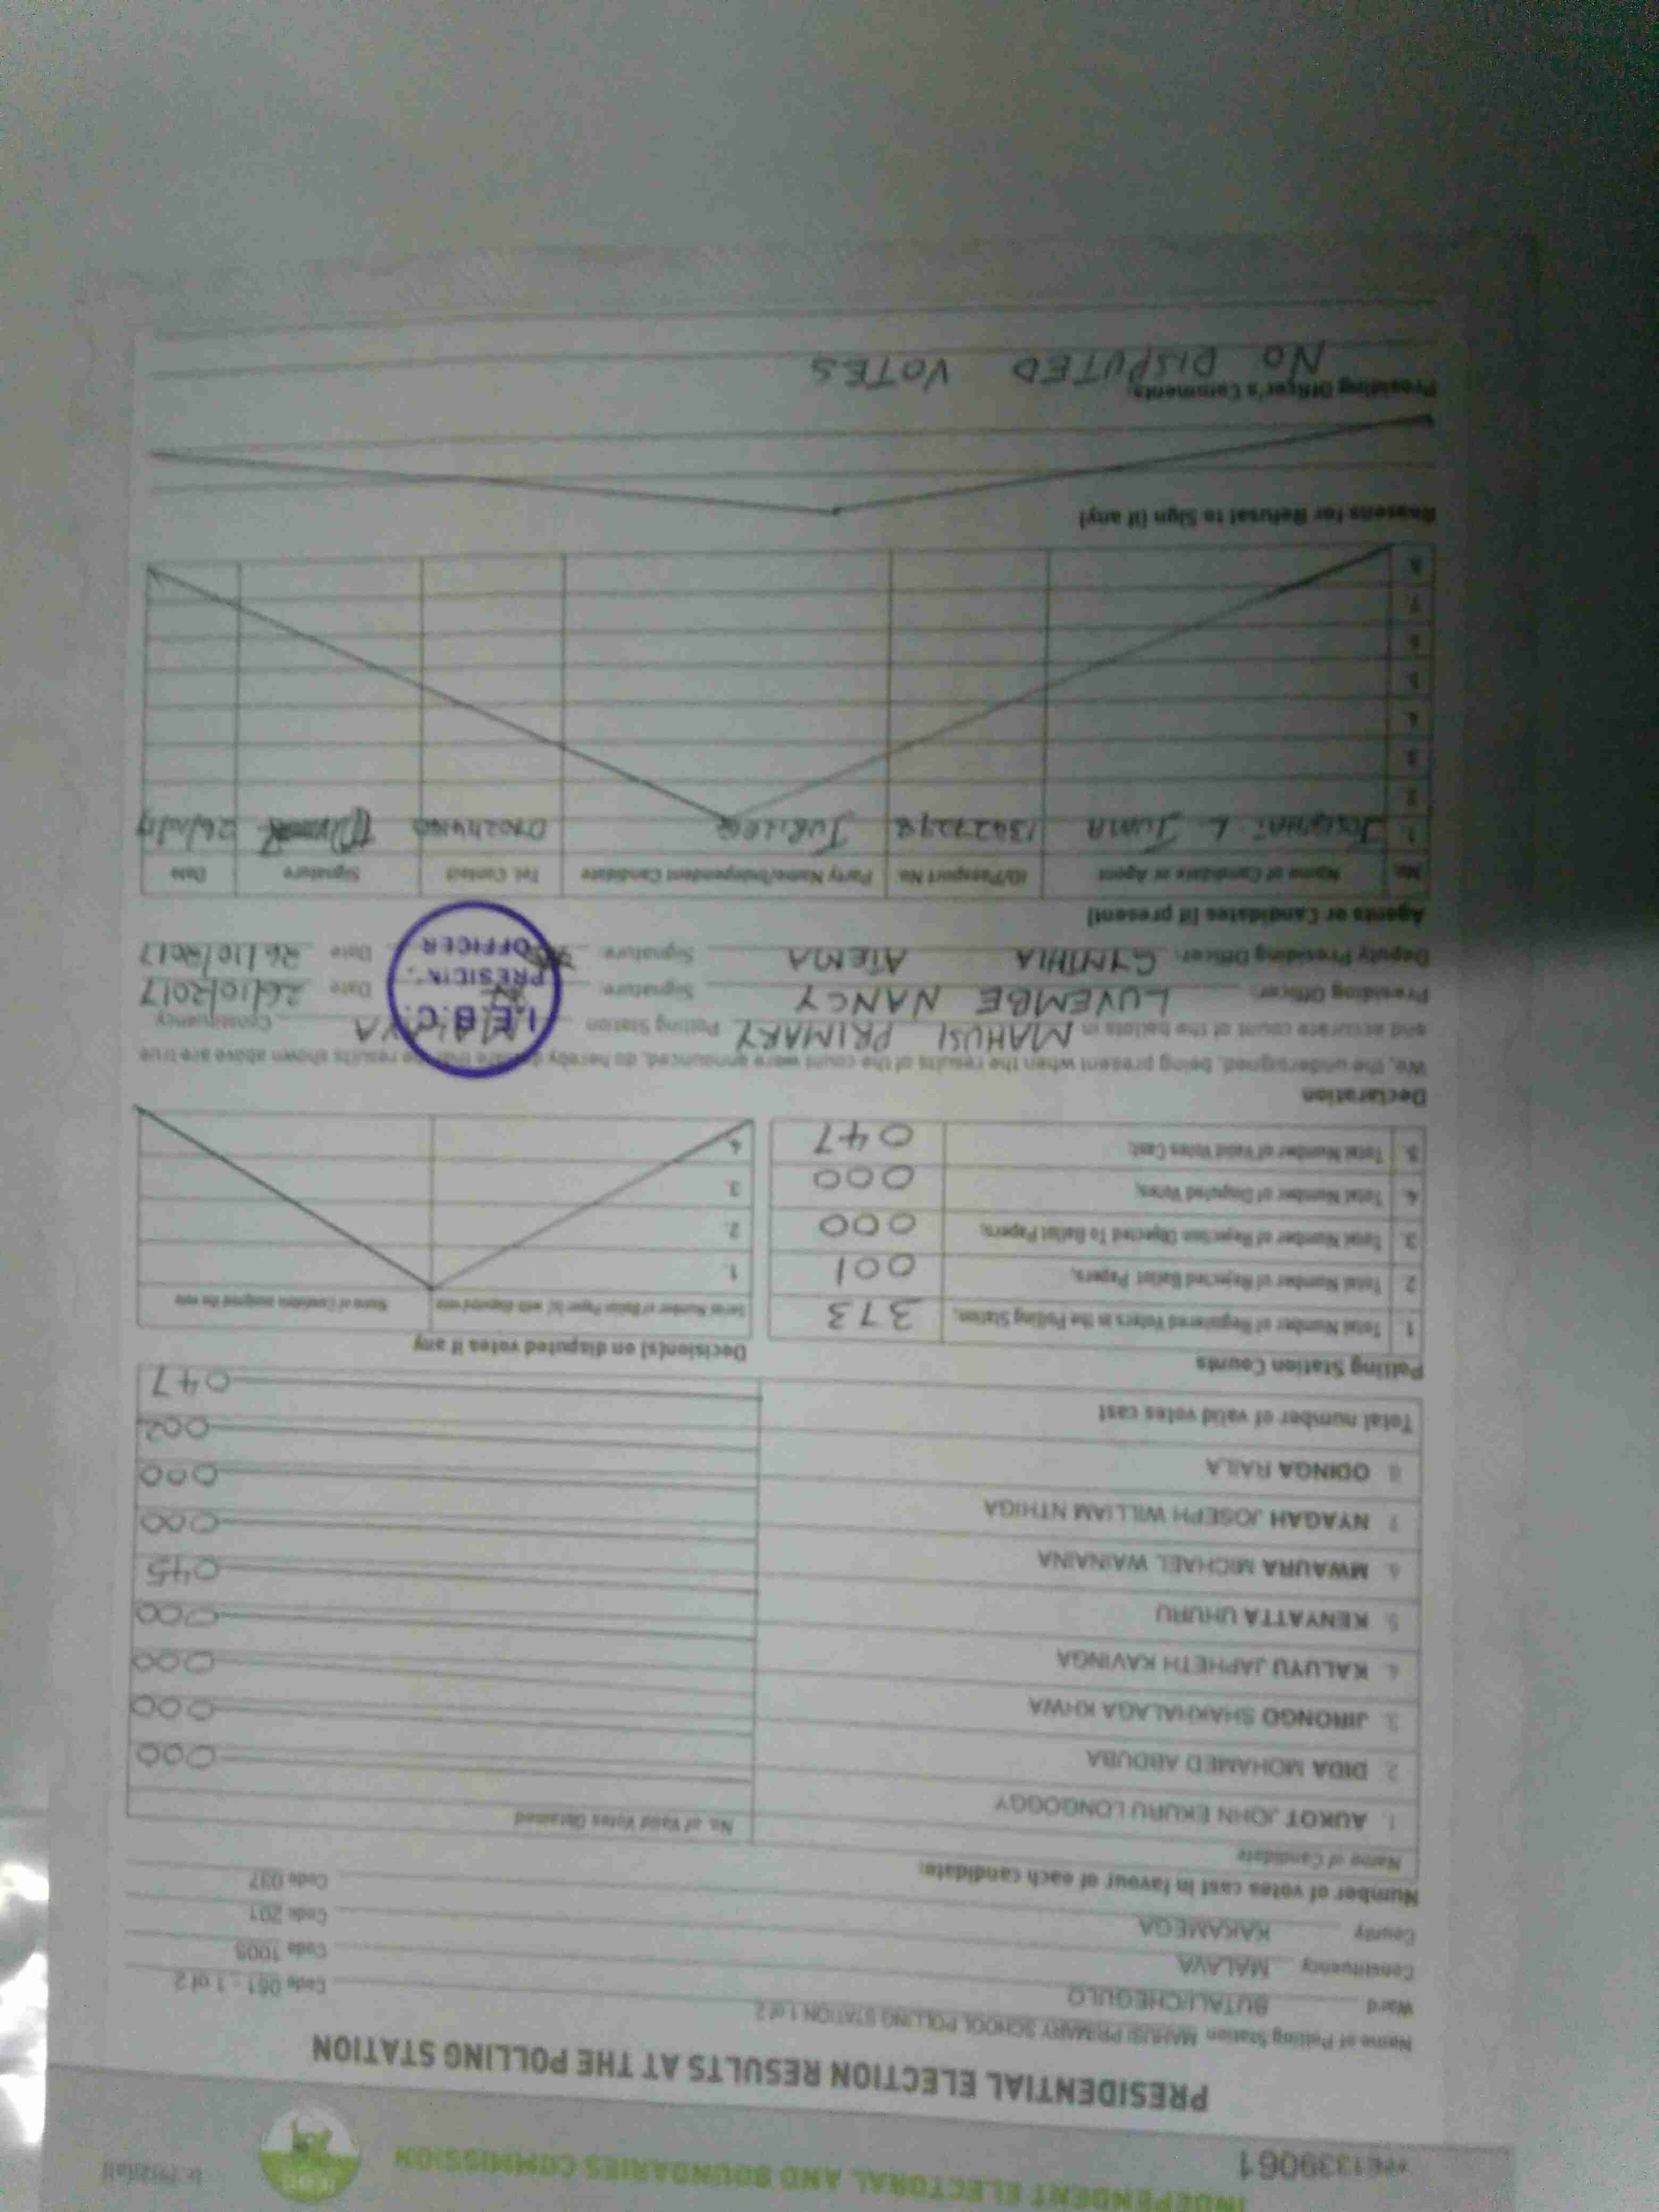 INDEPENDENT ELECTORAL AND BOUNDARIES COMMISSION
1339061
IEBC
PRESIDENTIAL ELECTION RESULTS AT THE POLLING STATION
Name of Polling Station MAHUSI PRIMARY SCHOOL POLLING STATION 1 of 2 Code 061 - 1 of 2
Ward BUTALI/CHEGULO Code 1005
Constituency MALAVA Code 201
County KAKAMEGA Code 037
Number of votes cast in favour of each candidate:
Name of Candidate No. of Valid Votes Obtained
1. AUKOT JOHN EKURU LONGOGGY 000
2. DIDA MOHAMED ABDUBA 000
3. JIRONGO SHAKHALAGA KHWA 000
4. KALUYU JAPHETH KAVINGA 000
5. KENYATTA UHURU 045
6. MWAURA MICHAEL WAINAINA 000
7. NYAGAH JOSEPH WILLIAM NTHIGA 000
8. ODINGA RAILA 002
Total number of valid votes cast 047
Polling Station Counts
1. Total Number of Registered Voters in the Polling Station; 373
2. Total Number of Rejected Ballot Papers; 001
3. Total Number of Rejection Objected To Ballot Papers; 000
4. Total Number of Disputed Votes; 000
5. Total Number of Valid Votes Cast; 047
Decision(s) on disputed votes if any
Serial Number of Ballot Paper (s) with disputed vote Name of Candidate assigned the vote
1.
2.
3.
4.
Declaration
We, the undersigned, being present when the results of the count were announced, do hereby declare that the results shown above are true
and accurate count of the ballots in MAHUSI PRIMARY Polling Station Constituency
Presiding Officer: LUVEMBE NANCY Signature: Date 26/10/2017
Deputy Presiding Officer: CYNTHIA ATEMA Signature: Date 26/10/2017
I.E.B.C.
PRESIDING
OFFICER
Agents or Candidates (if present)
No. Name of Candidate or Agent ID/Passport No. Party Name/Independent Candidate Tel. Contact Signature Date
1 L. JUMA JUBILEE 26/10/17
2
3
4
5
6
7
8
Reasons for Refusal to Sign (if any)
Presiding Officer's Comments:
NO DISPUTED VOTES